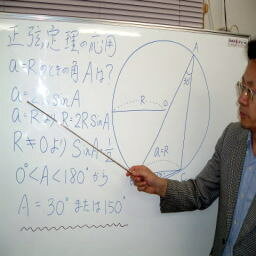 正弦定理の応用
a=Rのときの角Aは?
a=2RsinA
a=Rより R=2RsinA
R≠0より SinA=1/2
0°<A<180°から
A=30°または150°
A
30°
R
O
a=R
C